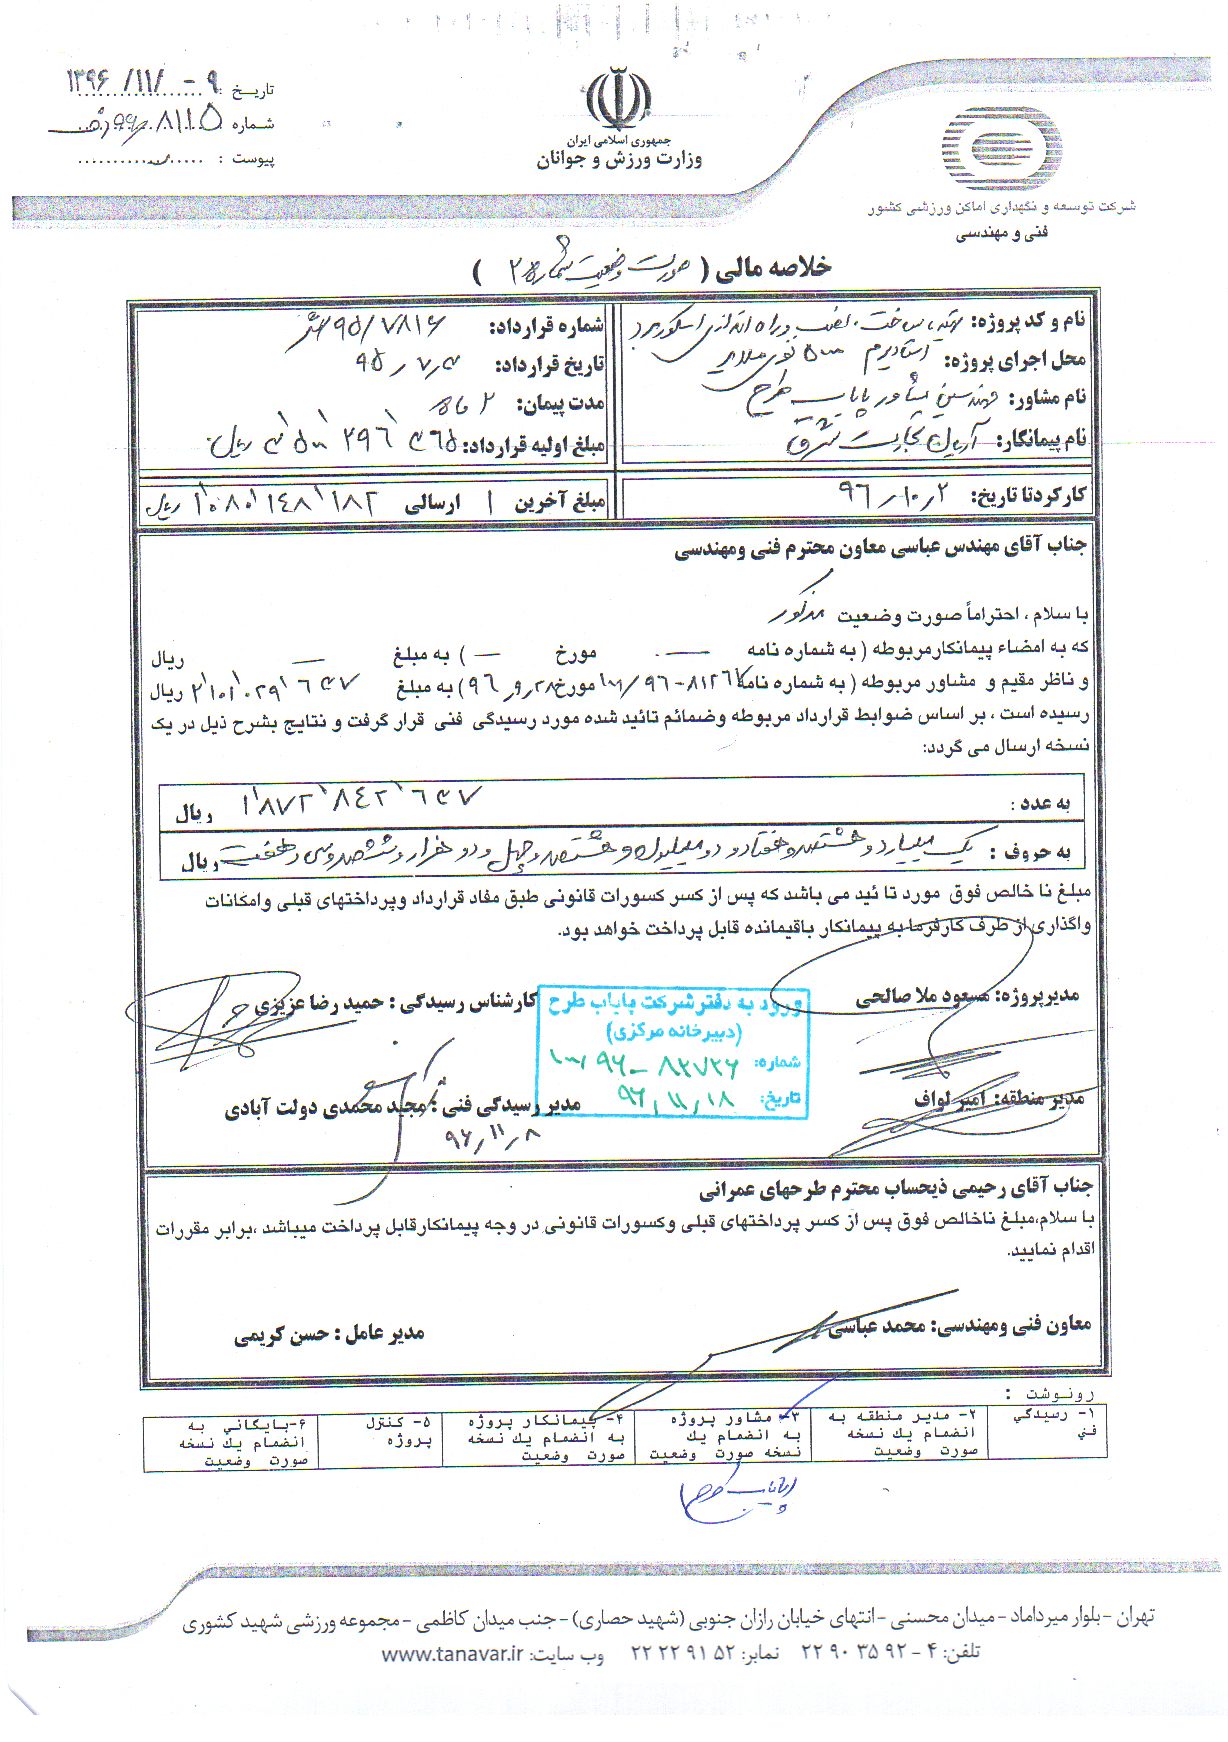 تاریخ : ۱۳۹۶/۱۱/۰۹
شماره ۸۱۱۵
پیوست :
جمهوری اسلامی ایران
وزارت ورزش و جوانان
شرکت توسعه و نگهداری اماکن ورزشی کشور
فنی و مهندسی
خلاصه مالی ( صورت وضعیت شماره ۲ )
نام و کد پروژه: تهیه، ساخت، نصب و راه اندازی اسکوربرد
محل اجرای پروژه: استادیوم ۵۰۰۰ نفری ملایر
نام مشاور: مهندسین مشاور پایاب طرح
نام پیمانکار: آریان تجارت شرق
شماره قرارداد: ۹۵/۷۸۱۶
تاریخ قرارداد: ۹۵/۷/۳
مدت پیمان: ۲ ماه
مبلغ اولیه قرارداد: ۳٬۵۰۰٬۲۹۶٬۴۶۵ ریال
کارکردتا تاریخ: ۹۶/۱۰/۲
مبلغ آخرین ۱ ارسالی ۱٬۰۸۰٬۱۴۸٬۱۸۲ ریال
جناب آقای مهندس عباسی معاون محترم فنی ومهندسی
با سلام ، احتراماً صورت وضعیت مذکور
که به امضاء پیمانکارمربوطه ( به شماره نامه — مورخ — ) به مبلغ — ریال
و ناظر مقیم و مشاور مربوطه ( به شماره نامه ۱۰۰/۹۶-۸۱۲۶۷ مورخ ۹۶/۹/۲۸) به مبلغ ۲٬۱۰۱٬۰۲۹٬۶۳۷ ریال
رسیده است ، بر اساس ضوابط قرارداد مربوطه وضمائم تائید شده مورد رسیدگی فنی قرار گرفت و نتایج بشرح ذیل در یک
نسخه ارسال می گردد:
به عدد : ۱٬۸۷۲٬۸۴۲٬۶۳۷ ریال
به حروف : یک میلیارد و هشتصد و هفتاد و دو میلیون و هشتصد و چهل و دو هزار و ششصد و سی و هفت ریال
مبلغ نا خالص فوق مورد تا ئید می باشد که پس از کسر کسورات قانونی طبق مفاد قرارداد وپرداختهای قبلی وامکانات
واگذاری از طرف کارفرما به پیمانکار باقیمانده قابل پرداخت خواهد بود.
مدیرپروژه: مسعود ملا صالحی
کارشناس رسیدگی : حمید رضا عزیزی
ورود به دفتر شرکت پایاب طرح
(دبیرخانه مرکزی)
شماره: ۱۰۰/۹۶-۸۲۷۲۶
تاریخ: ۹۶/۱۱/۱۸
مدیر منطقه: امیر لواف
مدیر رسیدگی فنی : مجید محمدی دولت آبادی
۹۶/۱۱/۸
جناب آقای رحیمی ذیحساب محترم طرحهای عمرانی
با سلام،مبلغ ناخالص فوق پس از کسر پرداختهای قبلی وکسورات قانونی در وجه پیمانکارقابل پرداخت میباشد ،برابر مقررات
اقدام نمایید.
معاون فنی ومهندسی: محمد عباسی
مدیر عامل : حسن کریمی
رونوشت :
۱- رسیدگي
في
۲- مدیر منطقه به
انضمام یك نسخه
صورت وضعیت
۳- مشاور پروژه
به انضمام یك
نسخه صورت وضعیت
۴- پیمانكار پروژه
به انضمام یك نسخه
صورت وضعیت
۵- كنترل
پروژه
۶-بایگاني به
انضمام یك نسخه
صورت وضعیت
تهران -بلوار میرداماد- میدان محسنی -انتهای خیابان رازان جنوبی (شهید حصاری) -جنب میدان کاظمی -مجموعه ورزشی شهید کشوری
تلفن: ۴ - ۹۲ ۳۵ ۹۰ ۲۲ نمابر: ۵۲ ۹۱ ۲۲ ۲۲ وب سایت: www.tanavar.ir